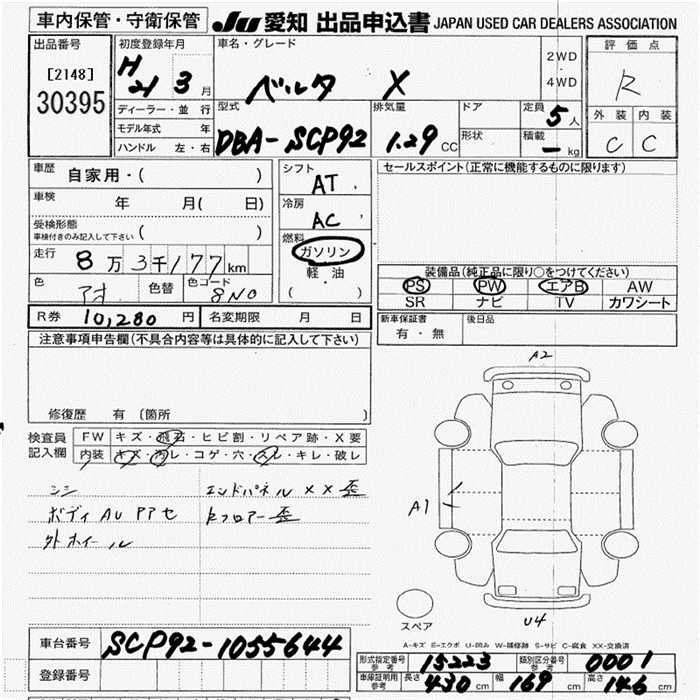 車内保管・守衛保管 JU 愛知 出品申込書 JAPAN USED CAR DEALERS ASSOCIATION
出品番号
[2148]
30395
初度登録年月
H 21 3月
ディーラー・並行
モデル年式 年
ハンドル 左・右
車名・グレード
ベルタ X
2WD
・
4WD
型式
DBA-SCP92
排気量
1.29 CC
ドア
形状
定員 5人
積載 ー kg
評価点
R
外装 内装
C C
車歴 自家用・( )
車検 年 月( 日)
受検形態
車検付きのみ記入して下さい ( )
走行 8万3千177km
色 色替 色コード 8N0
シフト
AT
冷房
AC
燃料
ガソリン
軽・油
( ・ )
セールスポイント(正常に機能するものに限ります)
装備品(純正品に限り○をつけてください)
PS PW エアB AW
SR ナビ TV カワシート
R券 10,280円 名変期限 月 日
新車保証書
有・無
後日品
注意事項申告欄(不具合内容等は具体的に記入して下さい)
修復歴 有(箇所
検査員
記入欄
FW キズ・飛石・ヒビ割・リペア跡・X要
内装 キズ・汚レ・コゲ・穴・スレ・キレ・破レ
シシ エンドパネル XX 歪
ボディ AU アアセ Rフロアー歪
外ホイール
A2
A1
U4
スペア
A-キズ E-エクボ U-凹み W-補修跡 S-サビ C-腐食 XX-交換済
車台番号 SCP92-1055644
登録番号
形式指定番号
参考 15223
類別区分番号
参考 0001
車庫証明用
参考 長さ 430cm 幅 169cm 高さ 146cm